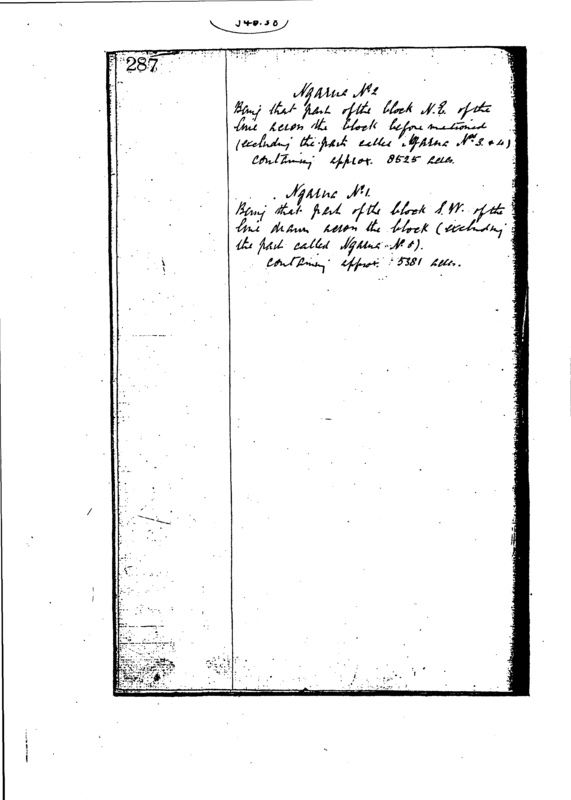 287
Ngarua No 2
Being that part of the block N.E. of the
line across the block before mentioned
(excluding the part called Ngarua Nos 3 & 4)
containing approx. 8525 acres.
Ngarua No 1.
Being that part of the block S.W. of the
line drawn across the block (excluding
the part called Ngarua No
containing approx. 5381 acres.